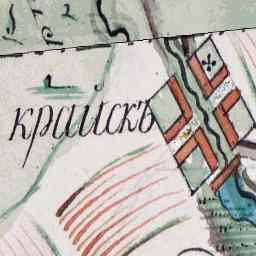 крайскъ